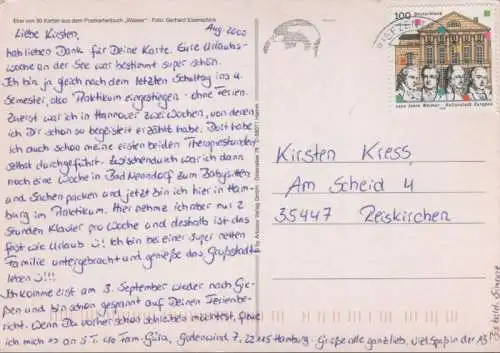 Eine von 30 Karten aus dem Postkartenbuch „Wasser“ · Foto: Gerhard Eisenschink
Liebe Kirsten, Aug. 2000
hab lieben Dank für Deine Karte. Eure Urlaubs-
woche an der See war bestimmt super schön.
Ich bin ja gleich nach dem letzten Schultag ins 4.
Semester, also Praktikum eingestiegen – ohne Ferien.
Zuerst war ich in Hannover zwei Wochen, von denen
ich Dir schon so begeistert erzählt habe. Dort habe
ich auch schon meine ersten beiden Therapiestunden
selbst durchgeführt. Zwischendurch war ich dann
noch eine Woche in Bad Nenndorf zum Babysitten
und Sachen packen und jetzt bin ich hier in Ham-
burg im Praktikum. Hier nehme ich aber nur 2
Stunden Klavier pro Woche und deshalb ist das
fast wie Urlaub !! Ich bin bei einer super netten
Familie untergebracht und genieße das Großstadt-
leben !!!
Ich komme erst am 3. September wieder nach Gie-
ßen und bin schon gespannt auf Deinen Ferienbe-
richt. Wenn Du vorher schon schreiben möchtest,
ich mich Fam. 7, 22115 Hamburg – Grüße alle ganz lieb, viel Spaß in der
100 Deutschland
1100 Jahre Weimar – Kulturstadt Europas
Kirsten Kress
Am Scheid 4
35447 Reiskirchen